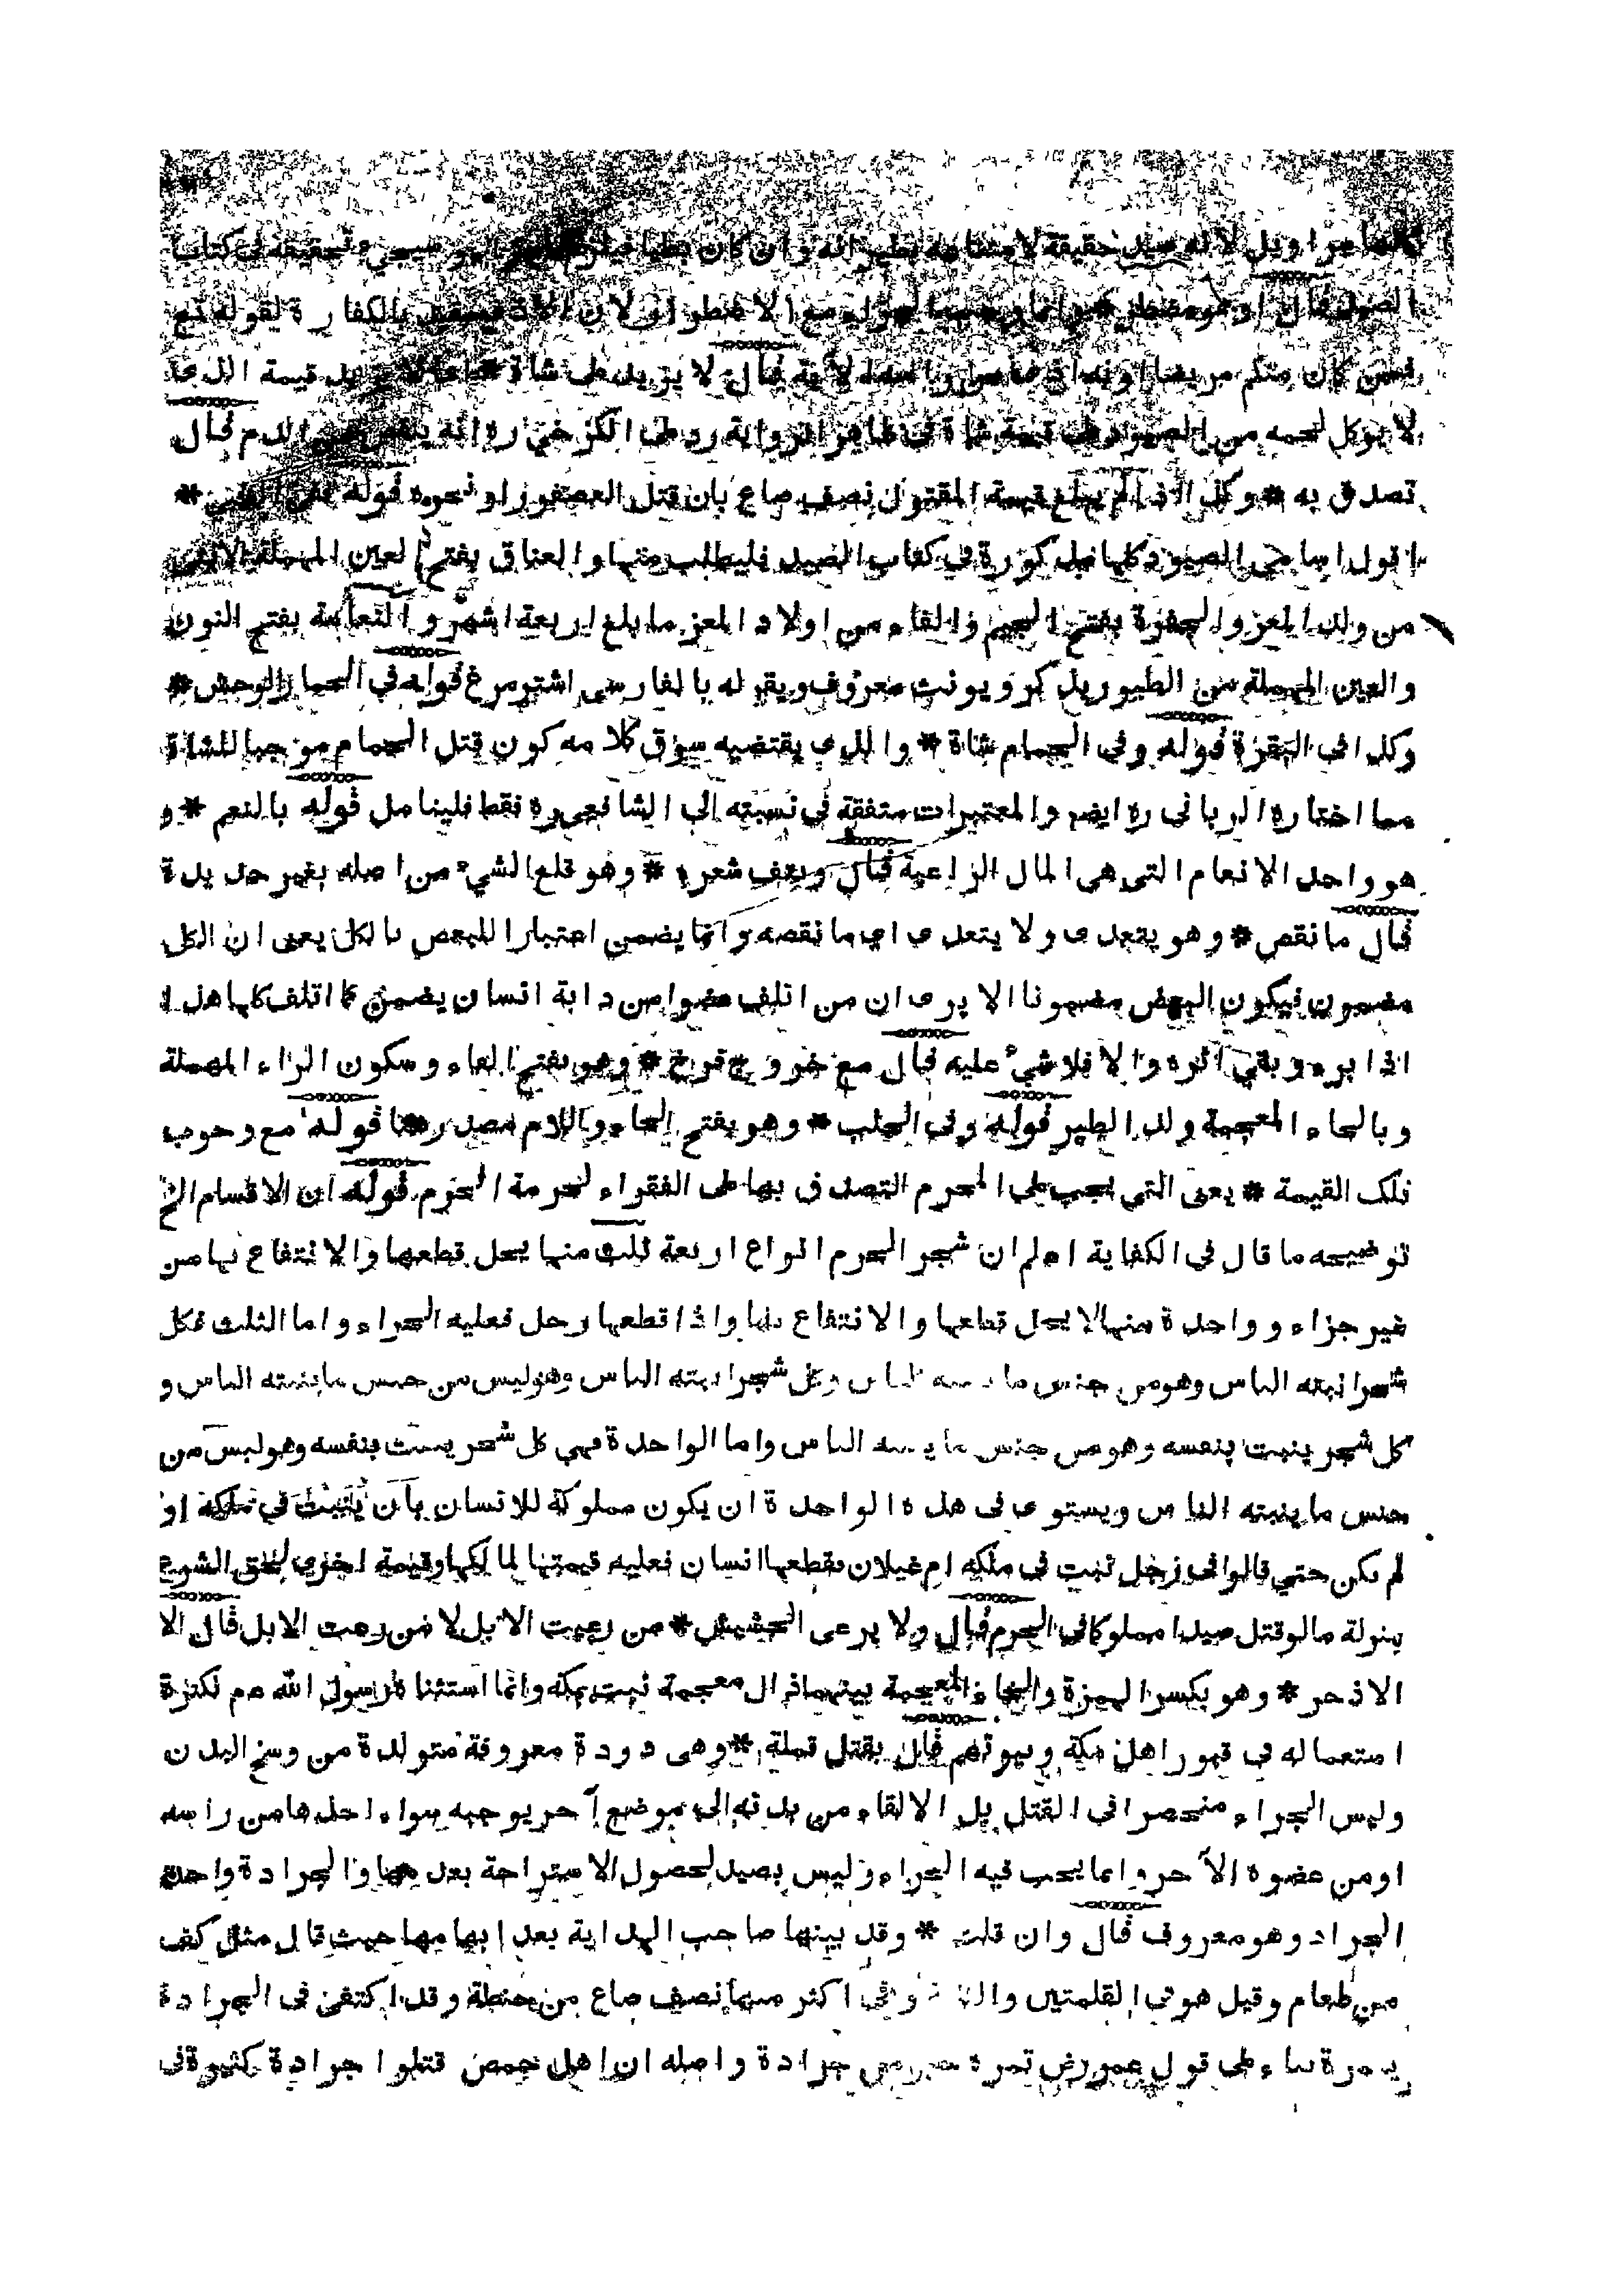 لانه صيد حقيقة وان كان تحقيقه في كتاب
الصيد قال او هو مضطر * بالكفارة لقوله تع
فمن كان منكم مريضا او به اذى قال لا يزيد على شاة قيمة الذي
لا يوكل لحمه من الصيود على قيمة شاة في ظاهر الرواية الدم قال
تصدق به * وكل المقتول نصف صاع بان قتل العصفور او نحوه قوله *
اقول اسامي الصيود كلها مذكورة في كتاب الصيد فليطلب منها والعناق بفتح العين المهملة الانثى
من ولد المعز والجفرة بفتح الجيم والفاء من اولاد المعز ما بلغ اربعة اشهر والنعامة بفتح النون
والعين المهملة من الطيور يذكر ويونث معروف ويقر له بالفارسي اشترمرغ قوله في الحمار الوحش *
وكذا في البقرة قوله وفي الحمام شاة * والذي يقتضيه سوق كلامه كون قتل الحمام موجبا للشاة
مما اختاره الرباني ره ايضم والمعتبرات متفقة في نسبته الى الشافعي ره فقط فليتامل قوله بالنعم * و
هو واحد الانعام التي هي المال الراعية قال ونتف شعره * وهو قلع الشيء من اصله بغير حديدة
قال ما نقص * وهو يتعدى ولا يتعدى اي ما نقصه وانما يضمن اعتبارا للبعض بالكل يعني ان الكل
مضمون فيكون البعض مضمونا الا يرى ان من اتلف عضوا من دابة انسان يضمن كما اتلف كلها هذا
اذا برء وبقي اثره والا فلا شيء عليه قال مع خروج فرخ * وهو بفتح الفاء وسكون الراء المهملة
وبالخاء المعجمة ولد الطير قوله وفي الحلب * وهو بفتح الحاء واللام مصدر قوله مع وجوب
تلك القيمة * يعني التي تجب على المحرم التصدق بها على الفقراء لحرمة الحرم قوله ان الاقسام الخ
توضيحه ما قال في الكفاية اعلم ان شجر الحرم انواع اربعة ثلث منها يحل قطعها والانتفاع بها من
غير جزاء وواحدة منها لا يحل قطعها والانتفاع بها واذا قطعها رجل فعليه الجزاء واما الثلث فكل
شجر انبته الناس وهو من جنس ما ينبته الناس وكل شجر انبته الناس وهو ليس من جنس ما ينبته الناس و
كل شجر ينبت بنفسه وهو من جنس ما ينبته الناس واما الواحدة فهي كل شجر ينبت بنفسه وهو ليس من
جنس ما ينبته الناس ويستوى في هذه الواحدة ان يكون مملوكة للانسان بان ينبت في ملكه او
لم يكن حتي قالوا في رجل نبت في ملكه ام غيلان فقطعها انسان فعليه قيمتها لمالكها وقيمة اخرى لحق الشرع
بمنزلة ما لو قتل صيدا مملوكا في الحرم قال ولا يرعى الحشيش * من رعيت الابل لا من رعت الابل قال الا
الاذخر * وهو بكسر الهمزة والخاء المعجمة بينهما ذال معجمة نبت بمكة وانما استثناه رسول الله عم لكثرة
استعماله في قبور اهل مكة وبيوتهم قال بقتل قملة * وهي دودة معروفة متولدة من وسخ البدن
وليس الجزاء منحصرا في القتل بل الالقاء من بدنه الى موضع آخر يوجبه سواء اخذها من راسه
او من عضوه الآخر وانما يجب فيه الجزاء وليس بصيد لحصول الاستراحة بعدمها والجرادة واحدة
الجراد وهو معروف قال وان قلت * وقد بينها صاحب الهداية بعد ابهامها حيث قال مثل كف
من طعام وقيل هو في القملتين وفي اكثر منها نصف صاع من حنطة وقد اكتفى في الجرادة
بتمرة بناء على قول عمر رض تمرة خير من جرادة واصله ان اهل حمص قتلوا جرادة كثيرة في